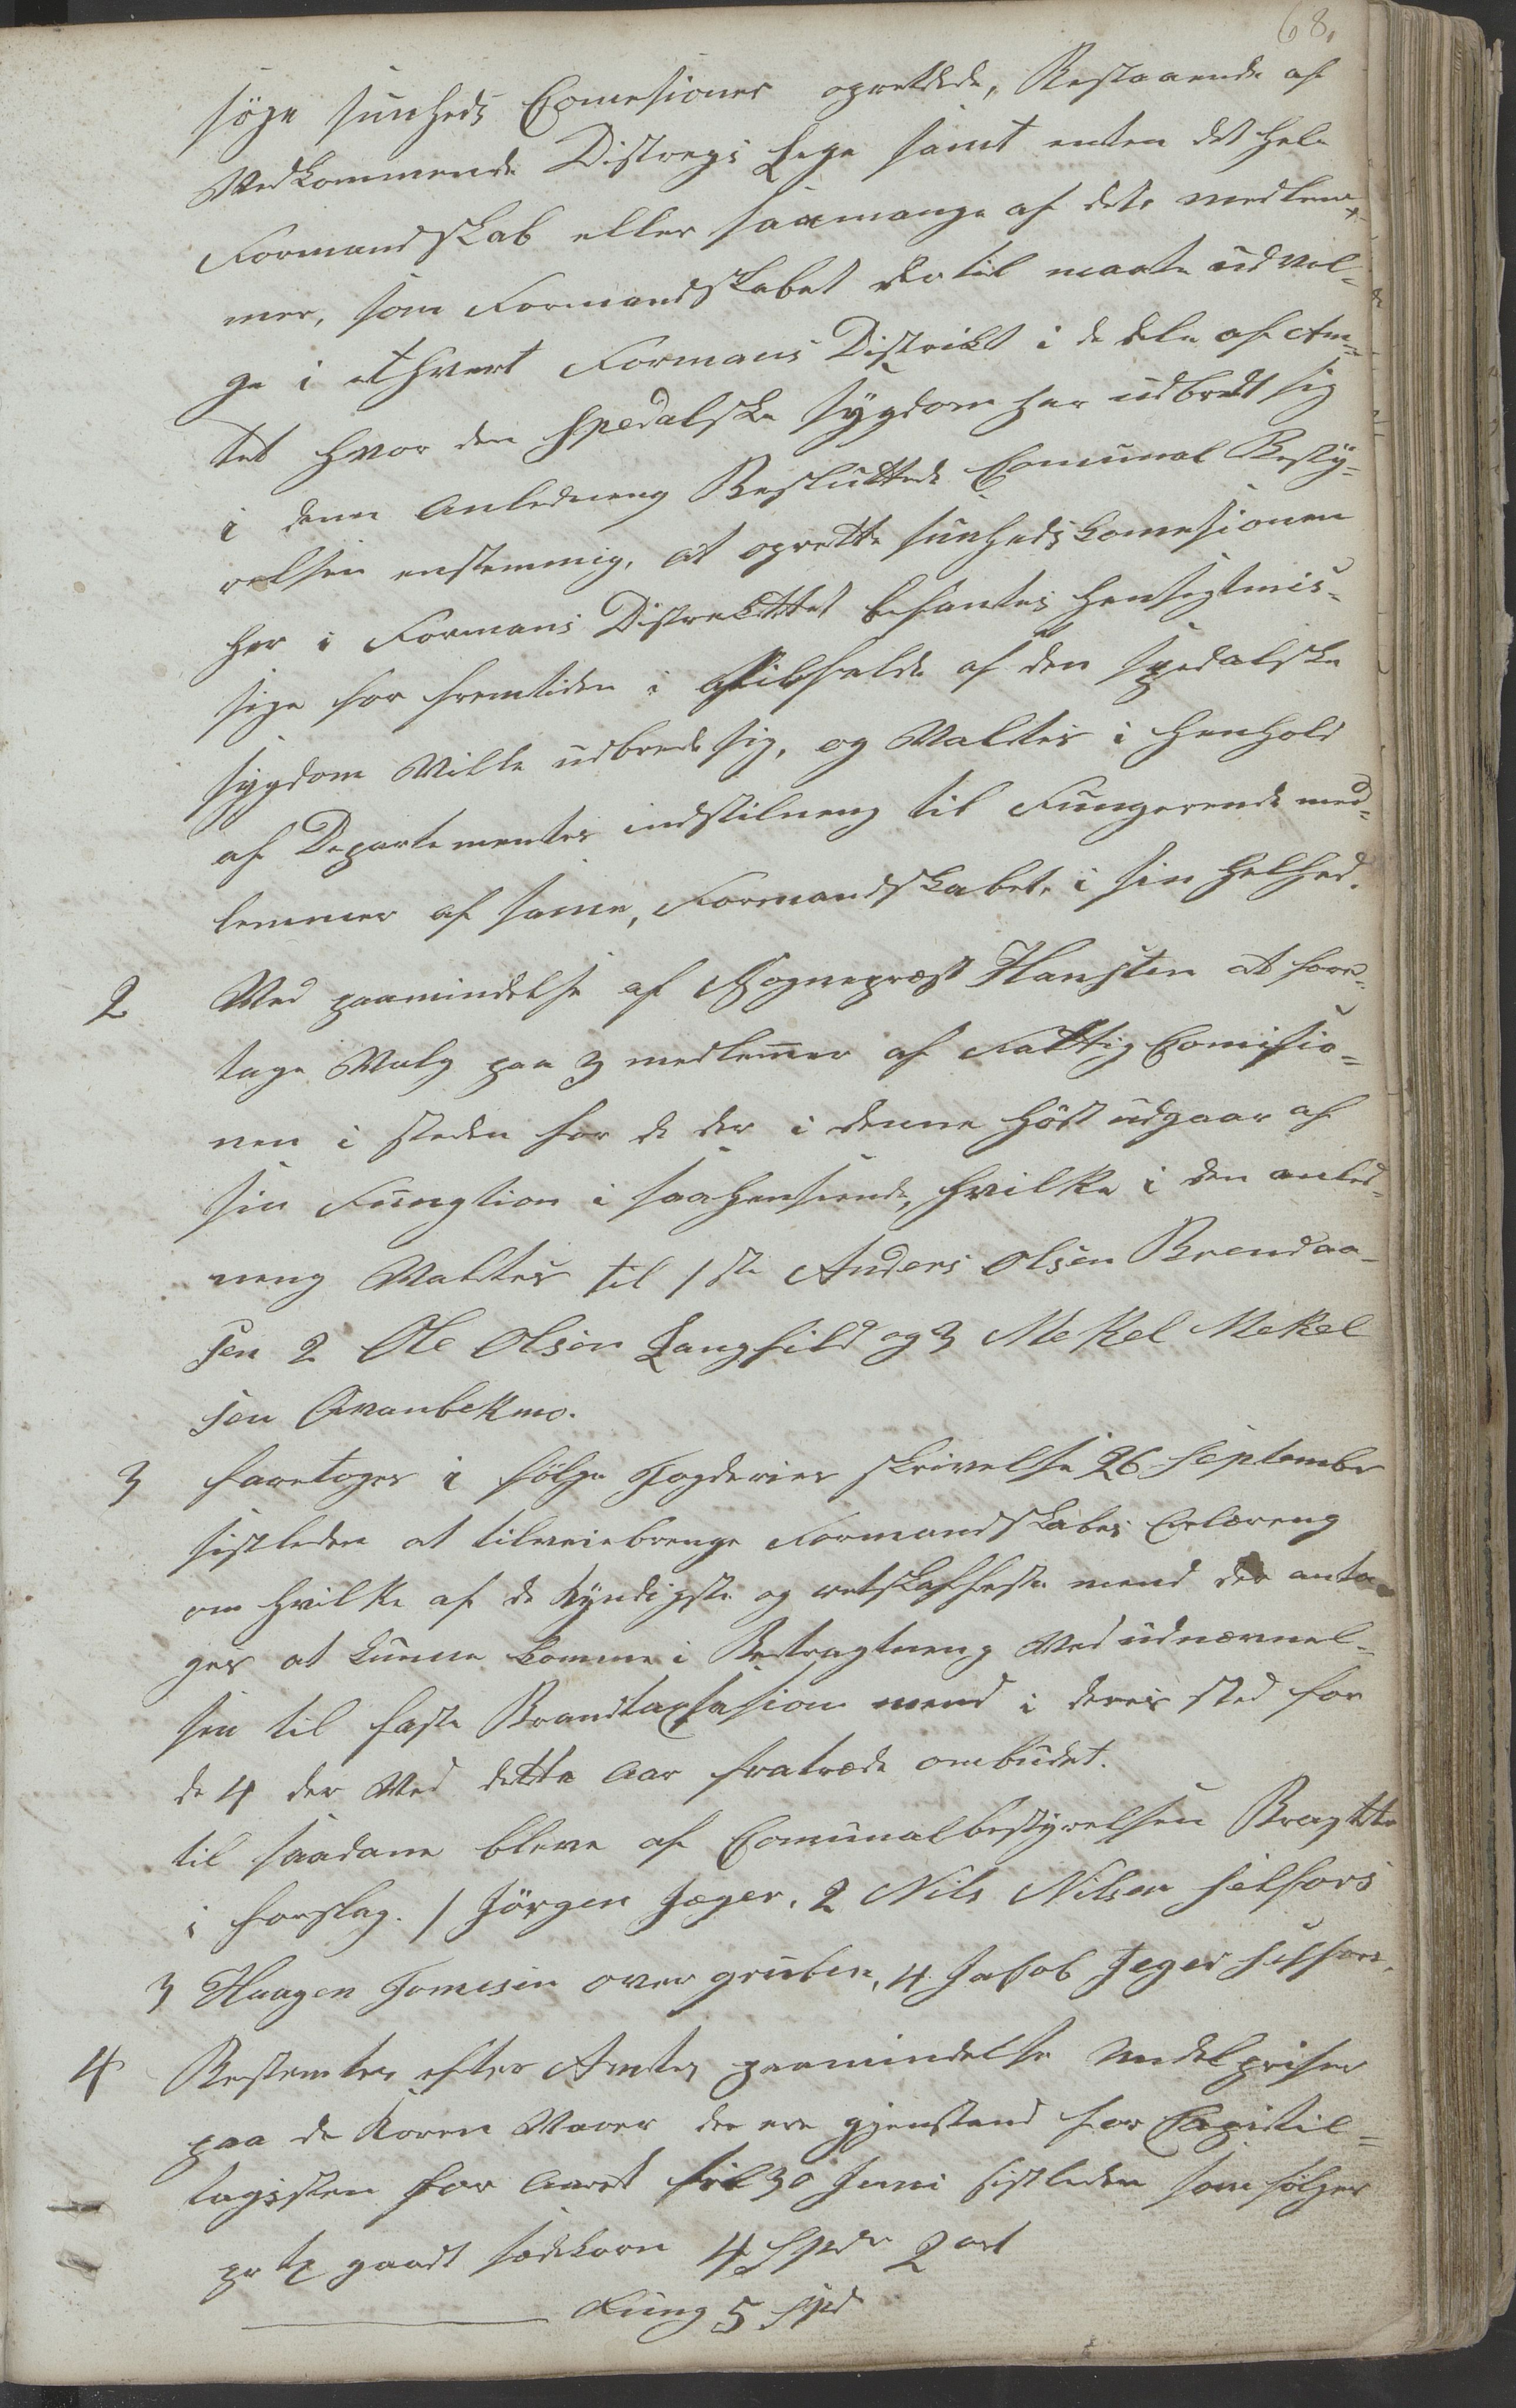 68.
søge sunheds Comesioner oprettede, Bestaaende af
Vedkommende Distregs Lege samt enten det hele
Formandskab eller saamange af dets medlem¬
mer, som Formandskabet dertil maate udvel¬
ge i ethvert Formans Distrikt i de dele af Am¬
tet hvor den spedalske sygdom har udbredt sig
i denn Anledneng Besluttede Comunal Besty¬
relsen enstemmig, at oprette sunheds Comesionen
her i Formans Distrekttet befantes hensigtmes¬
sige for fremtiden i tilfelde af den spedalske
sygdom Ville udbrede sig, og Valtes i henhold
af Departementes indstilneng til Fungerende med¬
lemmer af same, Formandskabet i sin helhed.
2 Ved paamindelse af Sogneprest Hansten at fore¬
tage Valg paa 3 medlemer af Fattig Comisio¬
nen i steden for de der i denne høst udgaar af
sin Fungtion i saahenseende, hvilke i den anled¬
neng Valtes til 1ste Anders Olsen Brendaa¬
sen 2 Ole Olsen Langfild og 3 Mekel Mekel
sen Svanbekmo.
3 foretoges i følge Fogderies skrivelse 26 September
sistleden at tilveiebrenge Formandskabes Erlæreng
om hvilke af de kyndigste og retskafneste mend der anta
ges at kunne komme i Betragtneng Ved udnævnel¬
sen til faste Brandtaxsasions mend i deres sted for
de 4 der Ved dette Aar fratræde ombudet.
til saadane bleve af Comunalbestyrelsen Bragtte
i forslag. 1 Jörgen Jæger. 2 Nils Nilsen Selfors
3 Haagen Tomesen over gruben, 4 Jakob Jeger Selfors.
4 Bestemtes efter Amtes paamindelse Medel priser
paa de Koren Varer der ere gjenstand for Capitil¬
tagsten for Aaret til 30 Juni sistleden som følger
pr tø godt sædekorn 4 Spdr 2 ort
Rung 5 Spd